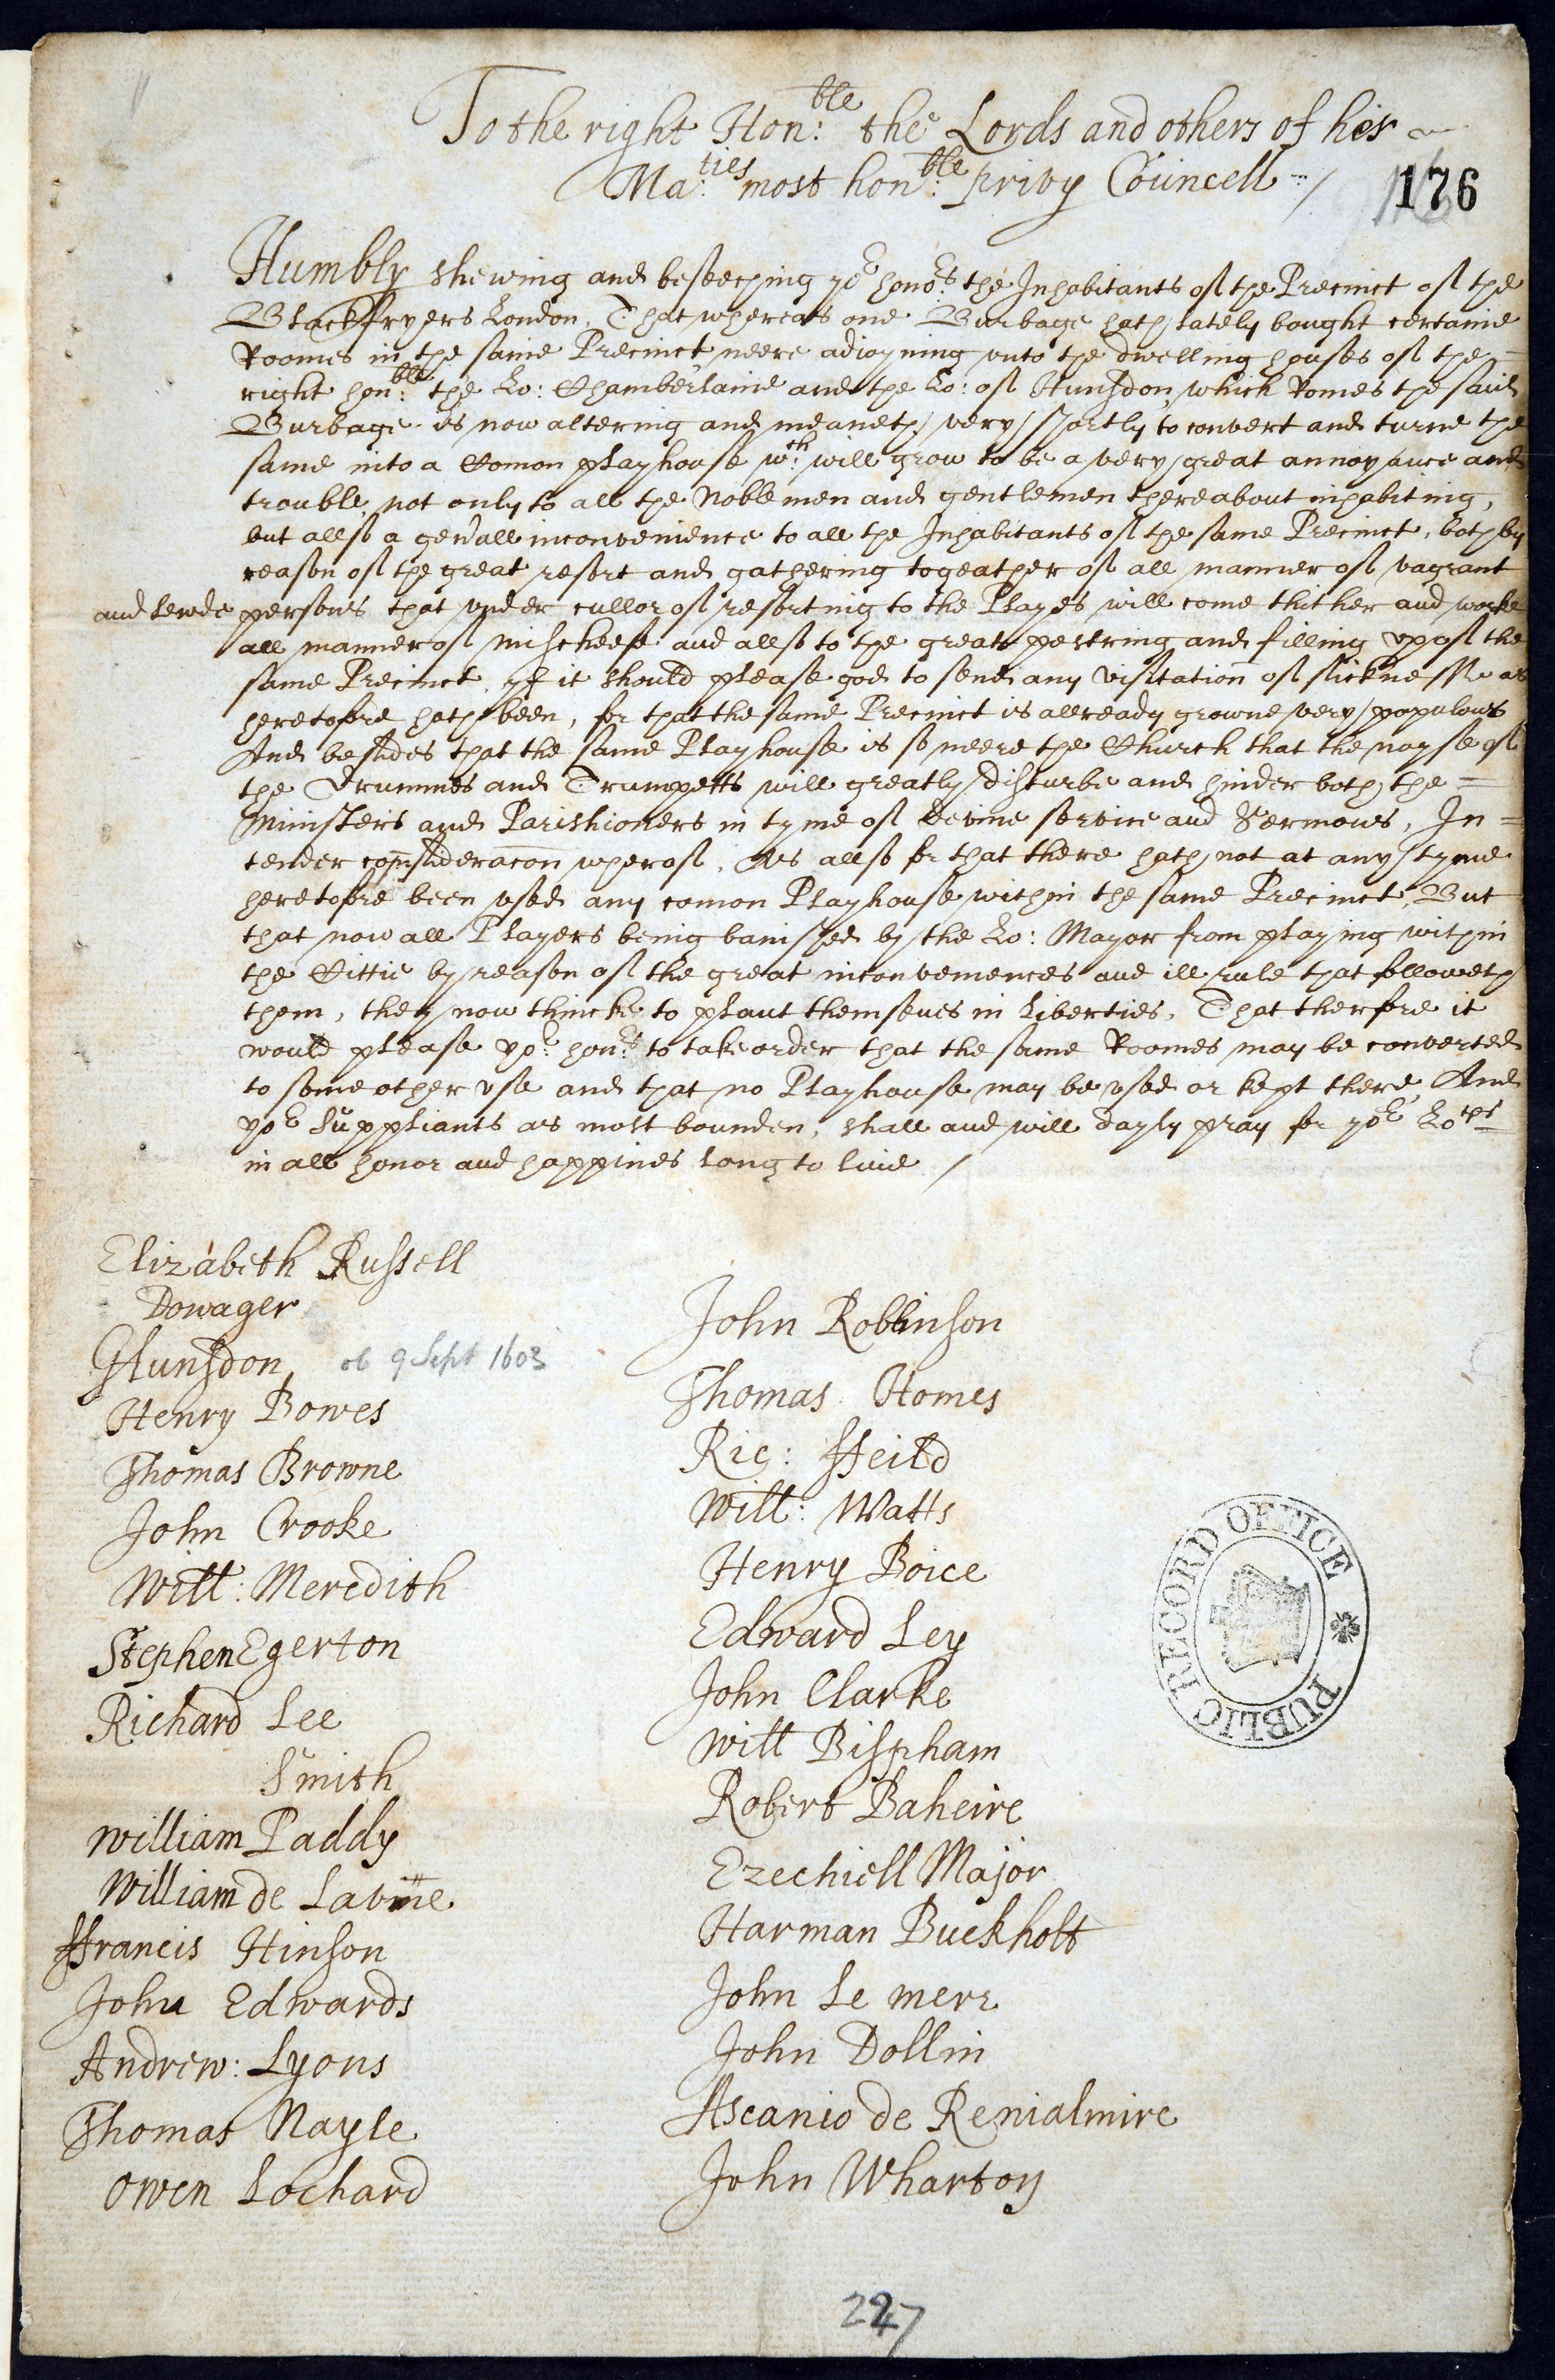 To the right Hon:ble the Lords and others of his
Ma:ties most hon:ble privy Councell /
176
Humbly shewing and beseeching yor hono:rs the Inhabitants of the Precinct of the
Blackfryers London, That whereas one Burbage hath lately bought certaine
Roomes in the same Precinct neere adioyning vnto the dwelling houses of the =
right hon:ble the Lo: Chamberlaine and the Lo: of Hunsdon, which Romes the said
Burbage is now altering and meaneth very shortly to convert and turne the
same into a Comon playhouse w:ch will grow to be a very great annoyance and
trouble, not only to all the Noblemen and gentlemen thereabout inhabiting,
but allso a gen'all inconvenience to all the Inhabitants of the same Precinct, both by
reason of the great resort and gathering togeather of all manner of vagrant
and lewde persons that vnder cullor of resorting to the Playes will come thither and worke
all manner of mischeefe, and allso to the greate pestring and filling vp of the
same Precinct, yf it should please god to send any visitation of sicknesse as
heretofore hath been, for that the same Precinct is allready growne very populous
And besides that the same Playhouse is so neere the Church that the noyse of
the Drummes and Trumpetts will greatly disturbe and hinder both the =
Ministers and Parishioners in tyme of devine service and Sermons, In =
tender consideracon wherof, As allso for that there hath not at any tyme
heretofore been vsed any comon Playhouse within the same Precinct, But
that now all Players being banished by the Lo: Mayor from playing within
the Cittie by reason of the great inconveniences and ill rule that followeth
them, they now thincke to plant themselues in Liberties, That therfore it
would please yo:r hon:rs to take order that the same Roomes may be converted
to some other vse and that no Playhouse may be vsed or kept there, And
yor Suppliants as most bounden, shall and will dayly pray for yor Lo:ps
in all honor and happines long to liue /
Elizabeth Russell
Dowager
GHunsdon ob 9 Sept 1603
Henry Bowes
Thomas Browne
John Crooke
Will: Meredith
Stephen Egerton
Richard Lee
Smith
William Paddy
William de Lavine
Francis Hinson
John Edwards
Andrew: Lyons
Thomas Nayle
Owen Lochard
John Robbinson
Thomas Homes
Ric: Feild
Will: Watts
Henry Boice
Edward Ley
John Clarke
Will Bispham
Robert Baheire
Ezechiell Major
Harman Buckholt
John Le mere
John Dollin
Ascanio de Renialmire
John Wharton
PUBLIC RECORD OFFICE
227